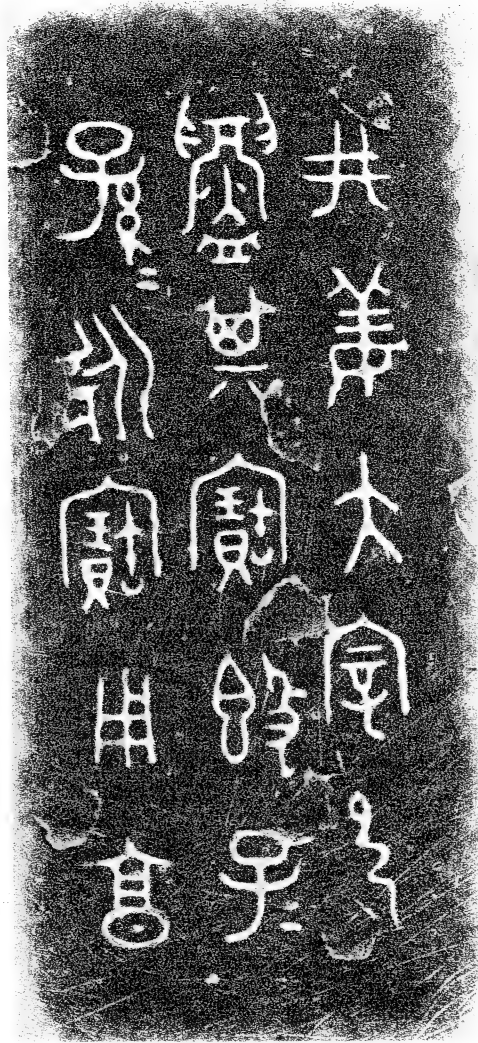 井姜大宰巳
鑄其寶簋子=
孫=永寶用享